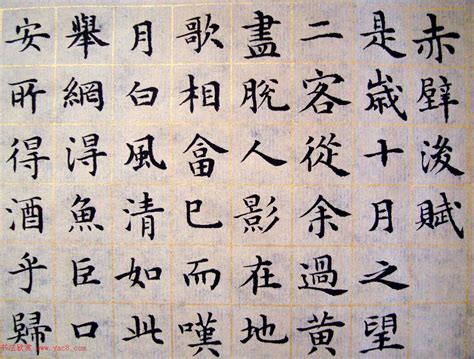 赤壁後賦
是歲十月之望
二客從余過黃
盡脫人影在地
歌相畣已而嘆
月白風清如此
舉網得魚巨口
安所得酒乎歸
书法欣赏 www.yac8.com